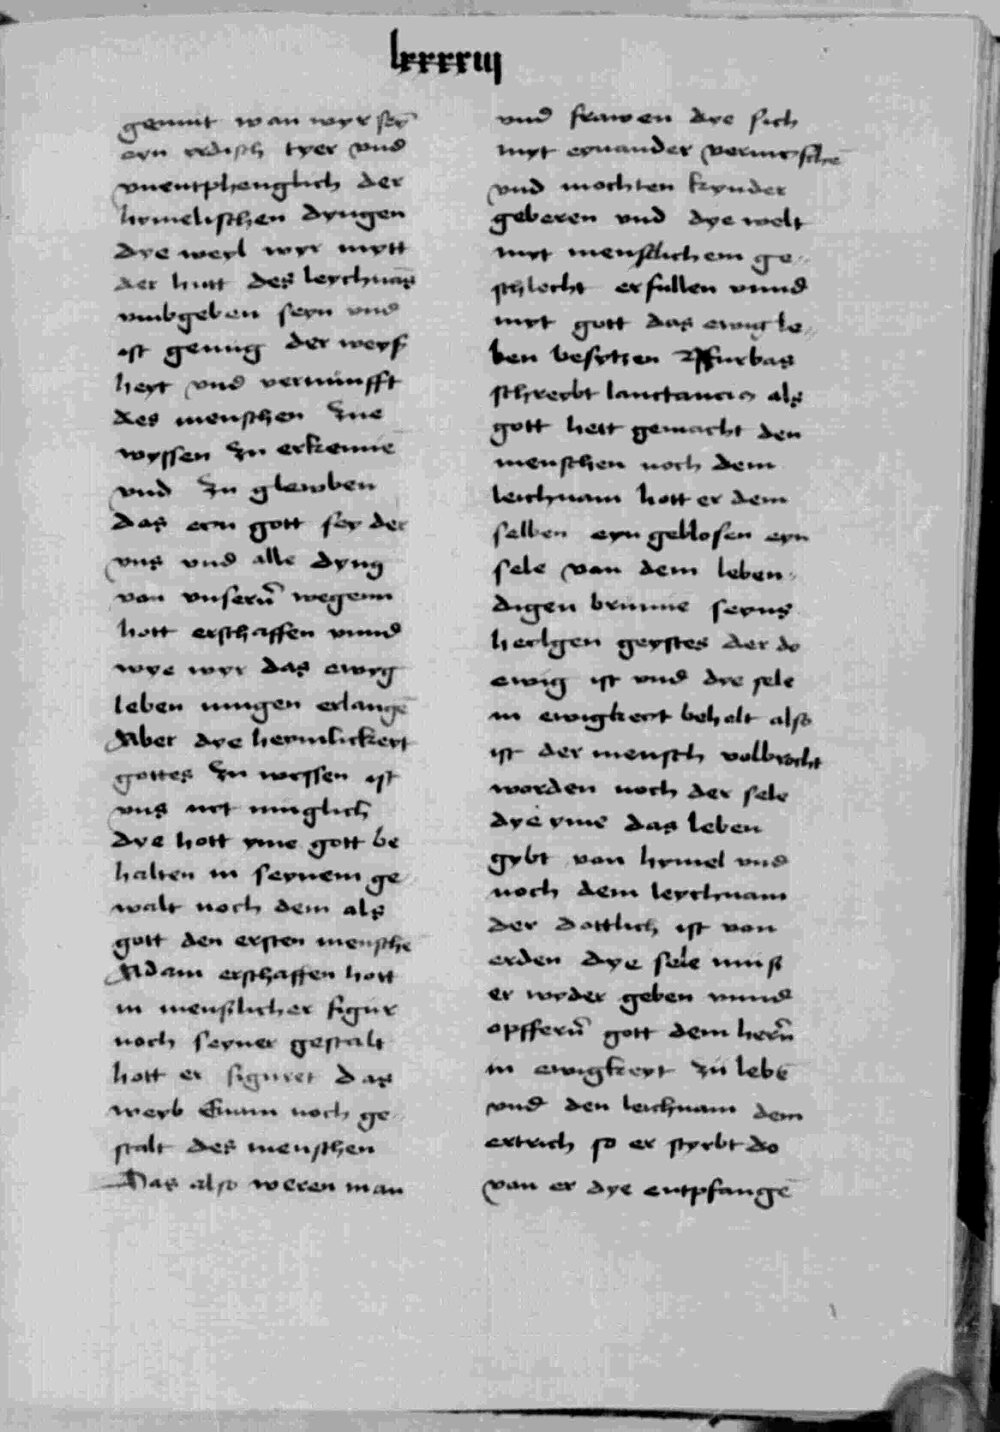 lxxxxiij
genunt wan wyr seȳ
eyn yrdisch tyer vnd
vnentphenglich der
hymelischen dyngen
dye weyl wyr mytt
der hutt des leychnās
vmbgeben seyn vnd
ist genug der weyß
heyt vnd vernunfft
des menschen zue
wyssen zu erkenne
vnd zu glewben
das eyn gott sey der
vns vnd alle dyng
von vnserñ wegenn
hott erschaffen vnnd
wye wyr das ewyg
leben mugen erlangē
Aber dye heymlickeyt
gottes zu wyssen ist
vns nyt muglich
dye hott yme gott be
halten in seynem ge
walt noch dem als
gott den ersten menschē
Adam erschaffen hott
in menslicher figur
noch seyner gestalt
hott er figuret das
weyb Euam noch ge
stalt des menschen
Das also weren man
vnd frawen dye sich
myt eynander vermyschē
vnd mochten kynder
geberen vnd dye welt
myt menschlichem ge-
schlecht erfullen vnnd
myt gott das ewig le-
ben besytzen Furbas
schreybt lanctancius als
gott hett gemacht den
menschen noch dem
leichnam hott er dem
selben eyn geblosen eyn
sele van dem leben-
digen brunne seyns
heylgen geystes der do
ewig ist vnd dye sele
in ewigkeyt behelt also
ist der mensch volbrocht
worden noch der sele
dye yme das leben
gybt van hymel vnd
noch dem leychnam
der dottlich ist von
erden dye sele muß
er wyder geben vnnd
opfferñ gott dem herñ
in ewigkeyt zu lebē
vnd den leichnam dem
ertrich so er styrbt do
van er dye entpfangē